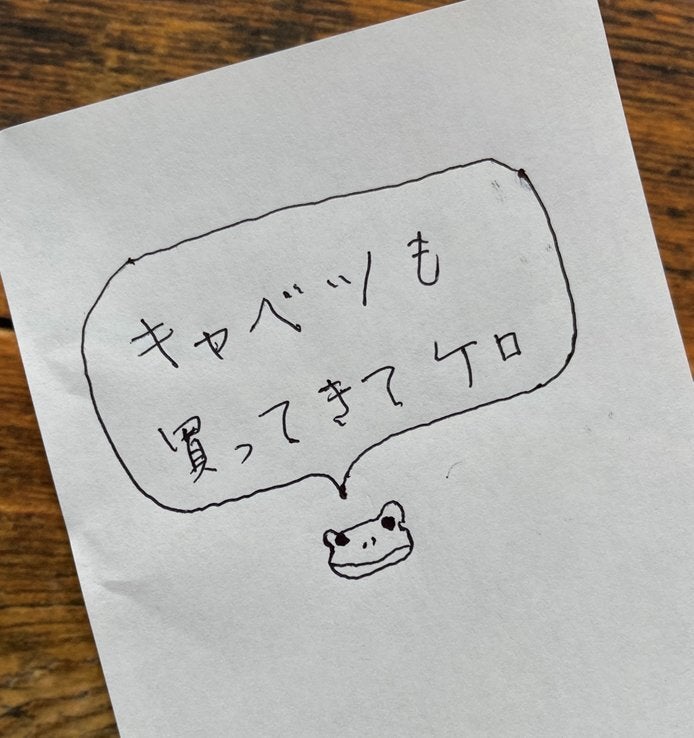 キャベツも
買ってきてケロ